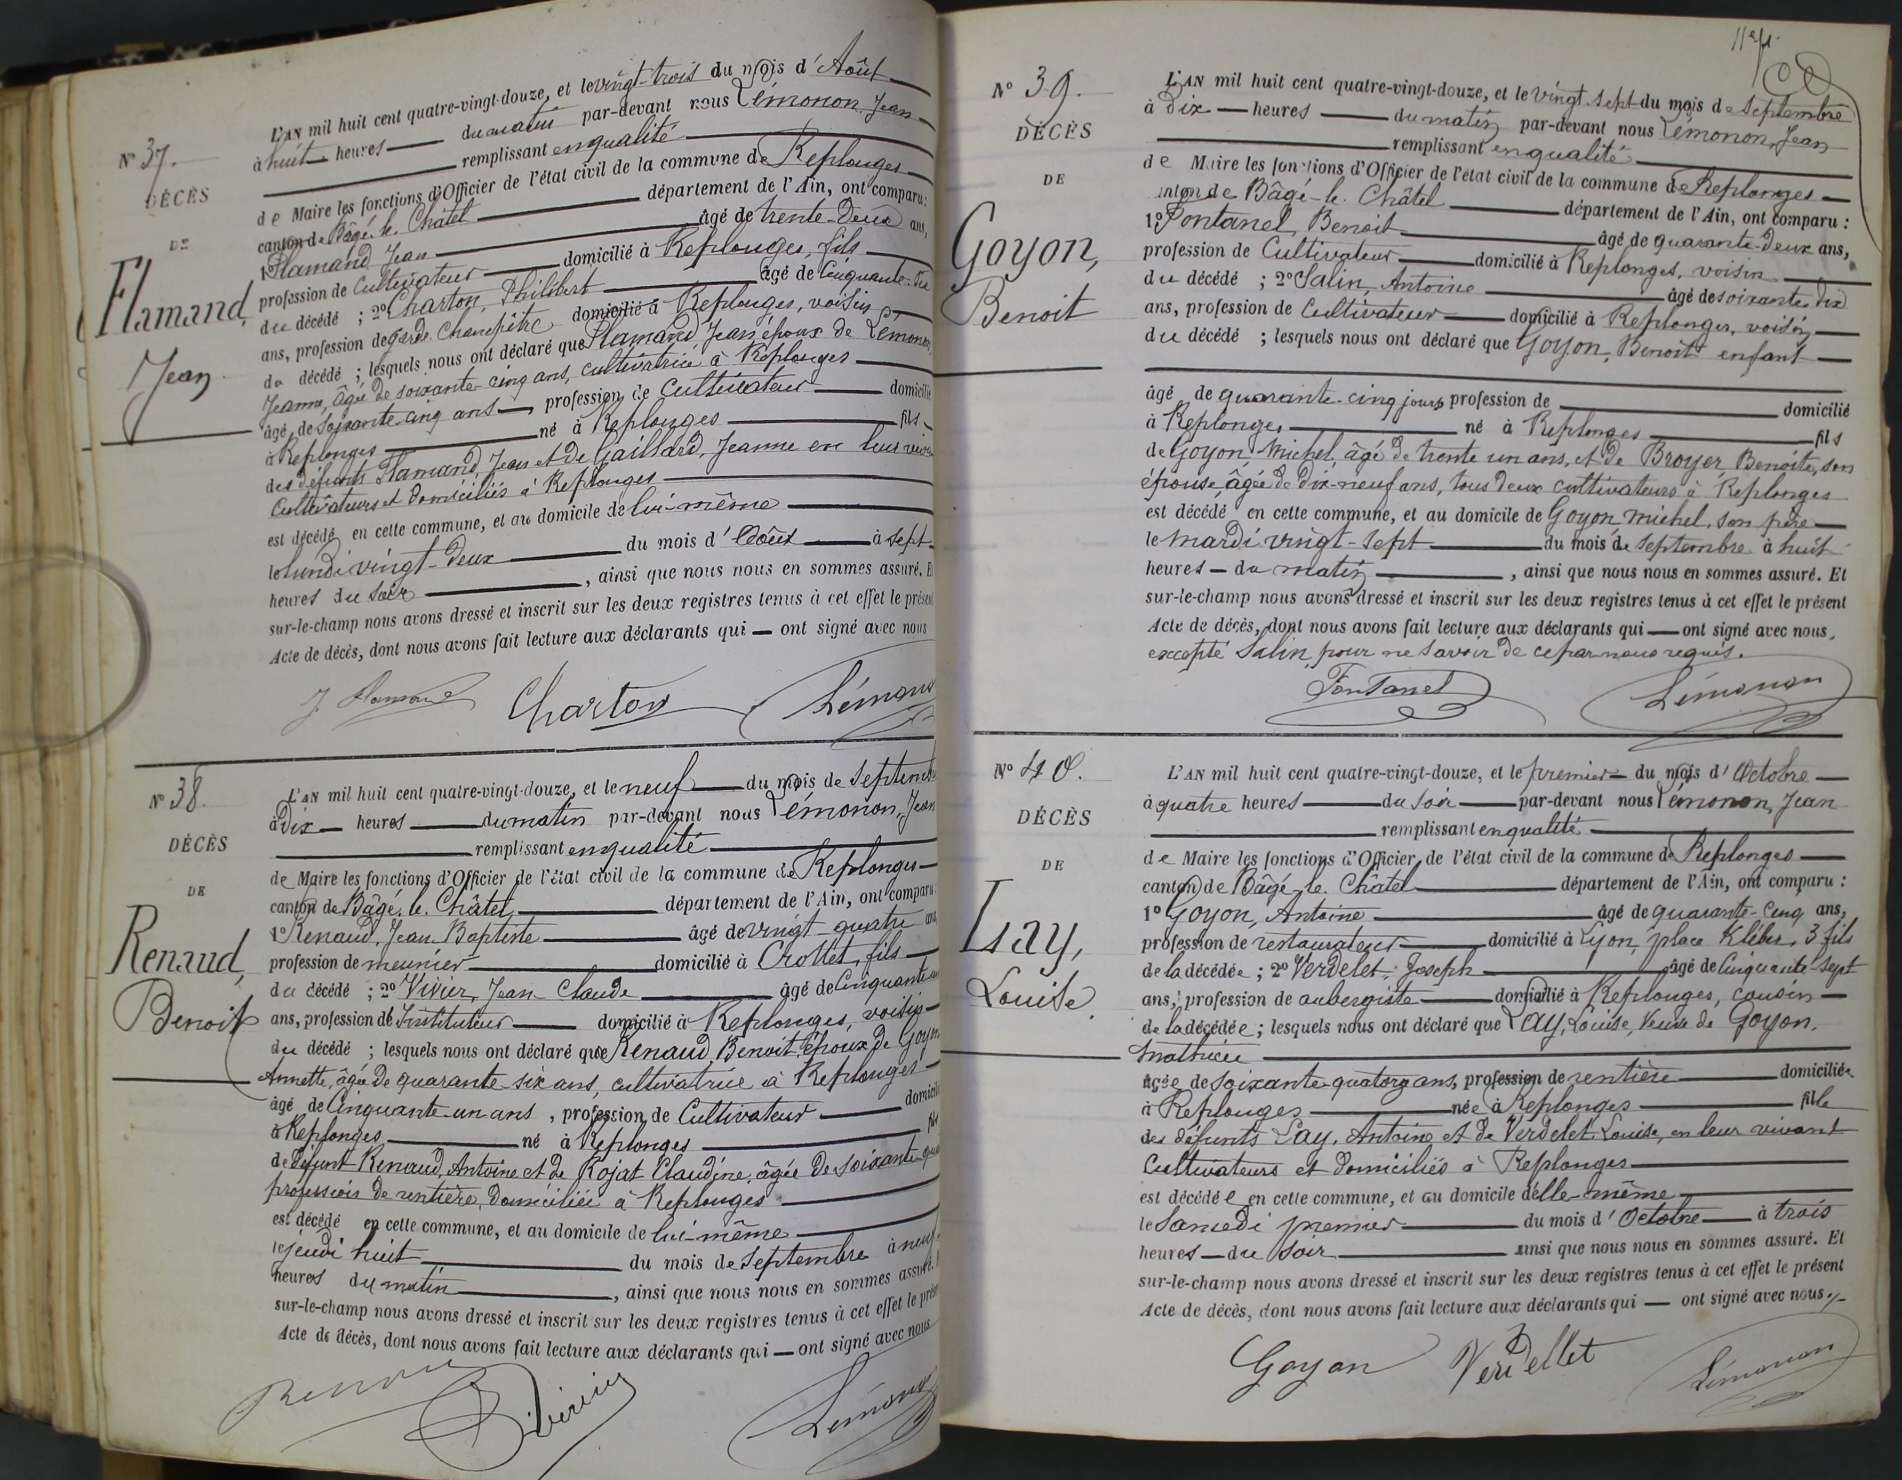 N° 37.
DÉCÈS
DE
Flamand,
Jean
L'AN mil huit cent quatre-vingt-douze, et le vingt-trois du mois d'Août
à huit heures du matin par-devant nous Lémonon Jean
remplissant en qualité
de Maire les fonctions d'Officier de l'état civil de la commune de Replonges
canton de Bâgé-le-Châtel département de l'Ain, ont comparu :
1° Flamand Jean âgé de trente-deux ans,
profession de Cultivateur domicilié à Replonges, fils
du décédé ; 2° Charton, Philibert âgé de Cinquante
ans, profession de garde champêtre domicilié à Replonges, voisin
du décédé ; lesquels nous ont déclaré que Flamand, Jean époux de Lémonon,
Jeanne, âgée de soixante-cinq ans, cultivatrice à Replonges
âgé de soixante-cinq ans, profession de Cultivateur domicilié
à Replonges né à Replonges fils
des défunts Flamand, Jean et de Gaillard, Jeanne en leur
Cultivateurs et domiciliés à Replonges
est décédé en cette commune, et au domicile de lui-même
le lundi vingt-deux du mois d'Août à sept
heures du soir, ainsi que nous nous en sommes assuré. Et
sur-le-champ nous avons dressé et inscrit sur les deux registres tenus à cet effet le présent
Acte de décès, dont nous avons fait lecture aux déclarants qui — ont signé avec nous
J. Flamand Charton Lémonon
N° 38.
DÉCÈS
DE
Renaud,
Benoit
L'AN mil huit cent quatre-vingt-douze, et le neuf du mois de Septembre
à Dix heures du matin par-devant nous Lémonon, Jean
remplissant en qualité
de Maire les fonctions d'Officier de l'état civil de la commune de Replonges
canton de Bâgé-le-Châtel département de l'Ain, ont comparu :
1° Renaud, Jean Baptiste âgé de vingt-quatre ans,
profession de meunier domicilié à Crottet, fils
du décédé ; 2° Vivier, Jean-Claude âgé de Cinquante
ans, profession de Instituteur domicilié à Replonges, voisin
du décédé ; lesquels nous ont déclaré que Renaud, Benoit époux de Goyon
Annette, âgée de quarante-six ans, cultivatrice à Replonges
âgé de Cinquante-un ans, profession de Cultivateur domicilié
à Replonges né à Replonges fils
de défunt Renaud, Antoine et de Rojat Claudine, âgée de soixante
profession de rentière, domiciliée à Replonges
est décédé en cette commune, et au domicile de lui-même
le jeudi huit du mois de Septembre à neuf
heures du matin, ainsi que nous nous en sommes assuré.
sur-le-champ nous avons dressé et inscrit sur les deux registres tenus à cet effet le présent
Acte de décès, dont nous avons fait lecture aux déclarants qui — ont signé avec nous
Renaud Vivier Lémonon
N° 39.
DÉCÈS
DE
Goyon,
Benoit
L'AN mil huit cent quatre-vingt-douze, et le vingt-sept du mois de Septembre
à dix heures du matin par-devant nous Lémonon, Jean
remplissant en qualité
de Maire les fonctions d'Officier de l'état civil de la commune de Replonges
canton de Bâgé-le-Châtel département de l'Ain, ont comparu :
1° Fontanel, Benoit âgé de quarante-deux ans,
profession de Cultivateur domicilié à Replonges, voisin
du décédé ; 2° Salin, Antoine âgé de soixante-dix
ans, profession de Cultivateur domicilié à Replonges, voisin
du décédé ; lesquels nous ont déclaré que Goyon, Benoit enfant
âgé de quarante-cinq jours profession de domicilié
à Replonges né à Replonges fils
de Goyon, Michel, âgé de trente un ans, et de Broyer, Benoite, son
épouse, âgée de dix-neuf ans, tous deux cultivateurs à Replonges
est décédé en cette commune, et au domicile de Goyon michel, son père
le mardi vingt-sept du mois de septembre à huit
heures — du matin, ainsi que nous nous en sommes assuré. Et
sur-le-champ nous avons dressé et inscrit sur les deux registres tenus à cet effet le présent
Acte de décès, dont nous avons fait lecture aux déclarants qui — ont signé avec nous,
excepté Salin pour ne savoir de ce par nous requis.
Fontanel Lémonon
N° 40.
DÉCÈS
DE
Lay,
Louise.
L'AN mil huit cent quatre-vingt-douze, et le premier du mois d'Octobre
à quatre heures du soir par-devant nous Lémonon, Jean
remplissant en qualité
de Maire les fonctions d'Officier de l'état civil de la commune de Replonges
canton de Bâgé-le-Châtel département de l'Ain, ont comparu :
1° Goyon, Antoine âgé de quarante-cinq ans,
profession de restaurateur domicilié à Lyon, place Kléber, 3 fils
de la décédée ; 2° Verdelet, Joseph âgé de Cinquante-sept
ans, profession de aubergiste domicilié à Replonges, cousin
de la décédée ; lesquels nous ont déclaré que Lay, Louise, Veuve de Goyon,
âgée de soixante-quatorze ans, profession de rentière domiciliée
à Replonges née à Replonges fille
des défunts Lay, Antoine et de Verdelet Louise, en leur vivant
Cultivateurs et domiciliés à Replonges
est décédée en cette commune, et au domicile d'elle-même
le Samedi premier du mois d'Octobre à trois
heures — du soir ainsi que nous nous en sommes assuré. Et
sur-le-champ nous avons dressé et inscrit sur les deux registres tenus à cet effet le présent
Acte de décès, dont nous avons fait lecture aux déclarants qui — ont signé avec nous.
Goyon Verdellet Lémonon